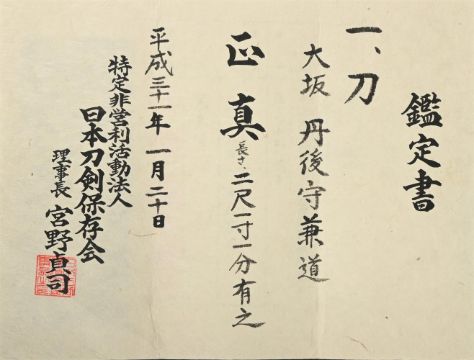 鑑定書
一、刀
大坂 丹後守兼道
正真 長さ、二尺一寸一分有之
平成三十一年 一月二十日
特定非営利活動法人
日本刀剣保存会
理事長 宮野貞司